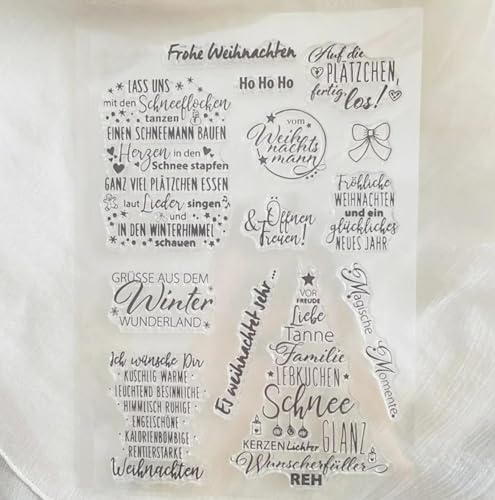 Frohe Weihnachten
Ho Ho Ho
Auf die
PLÄTZCHEN,
fertig
los!
LASS UNS
mit den Schneeflocken
tanzen
EINEN SCHNEEMANN BAUEN
Herzen in den
Schnee stapfen
GANZ VIEL PLÄTZCHEN ESSEN
laut Lieder singen
und
IN DEN WINTERHIMMEL
schauen
vom
Weih
nachts
mann
& Öffnen
Freuen!
Fröhliche
WEIHNACHTEN
und ein
glückliches
NEUES JAHR
GRÜSSE AUS DEM
Winter
WUNDERLAND
Ei weihnachtet sehr ...
VOR
FREUDE
Liebe
Tanne
Familie
LEBKUCHEN
Schnee
GLANZ
KERZEN Lichter
Wunscherfüller
REH
Magische Momente
Ich wünsche Dir
KUSCHLIG WARME
LEUCHTEND BESINNLICHE
HIMMLISCH RUHIGE
ENGELSCHÖNE
KALORIENBOMBIGE
RENTIERSTARKE
Weihnachten